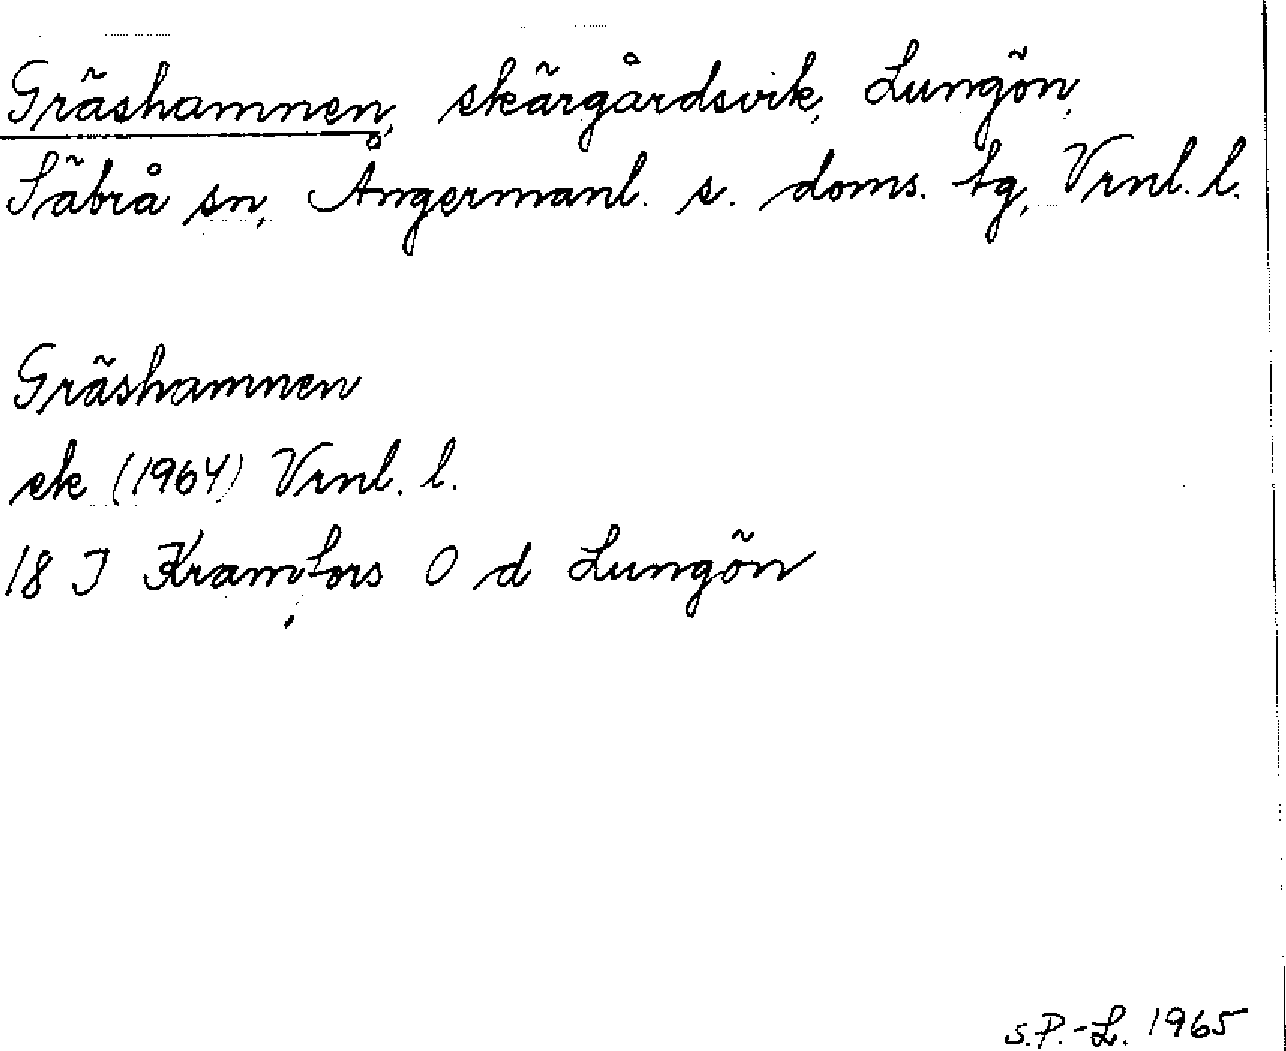 Gräshamnen, skärgårdsvik, Lungön,
Säbrå sn, Ångermanl. s. doms. tg, Vrnl. l.
Gräshamnen
ek (1964) Vrnl. l.
18 I Kramfors O d Lungön
S.P.-L. 1965